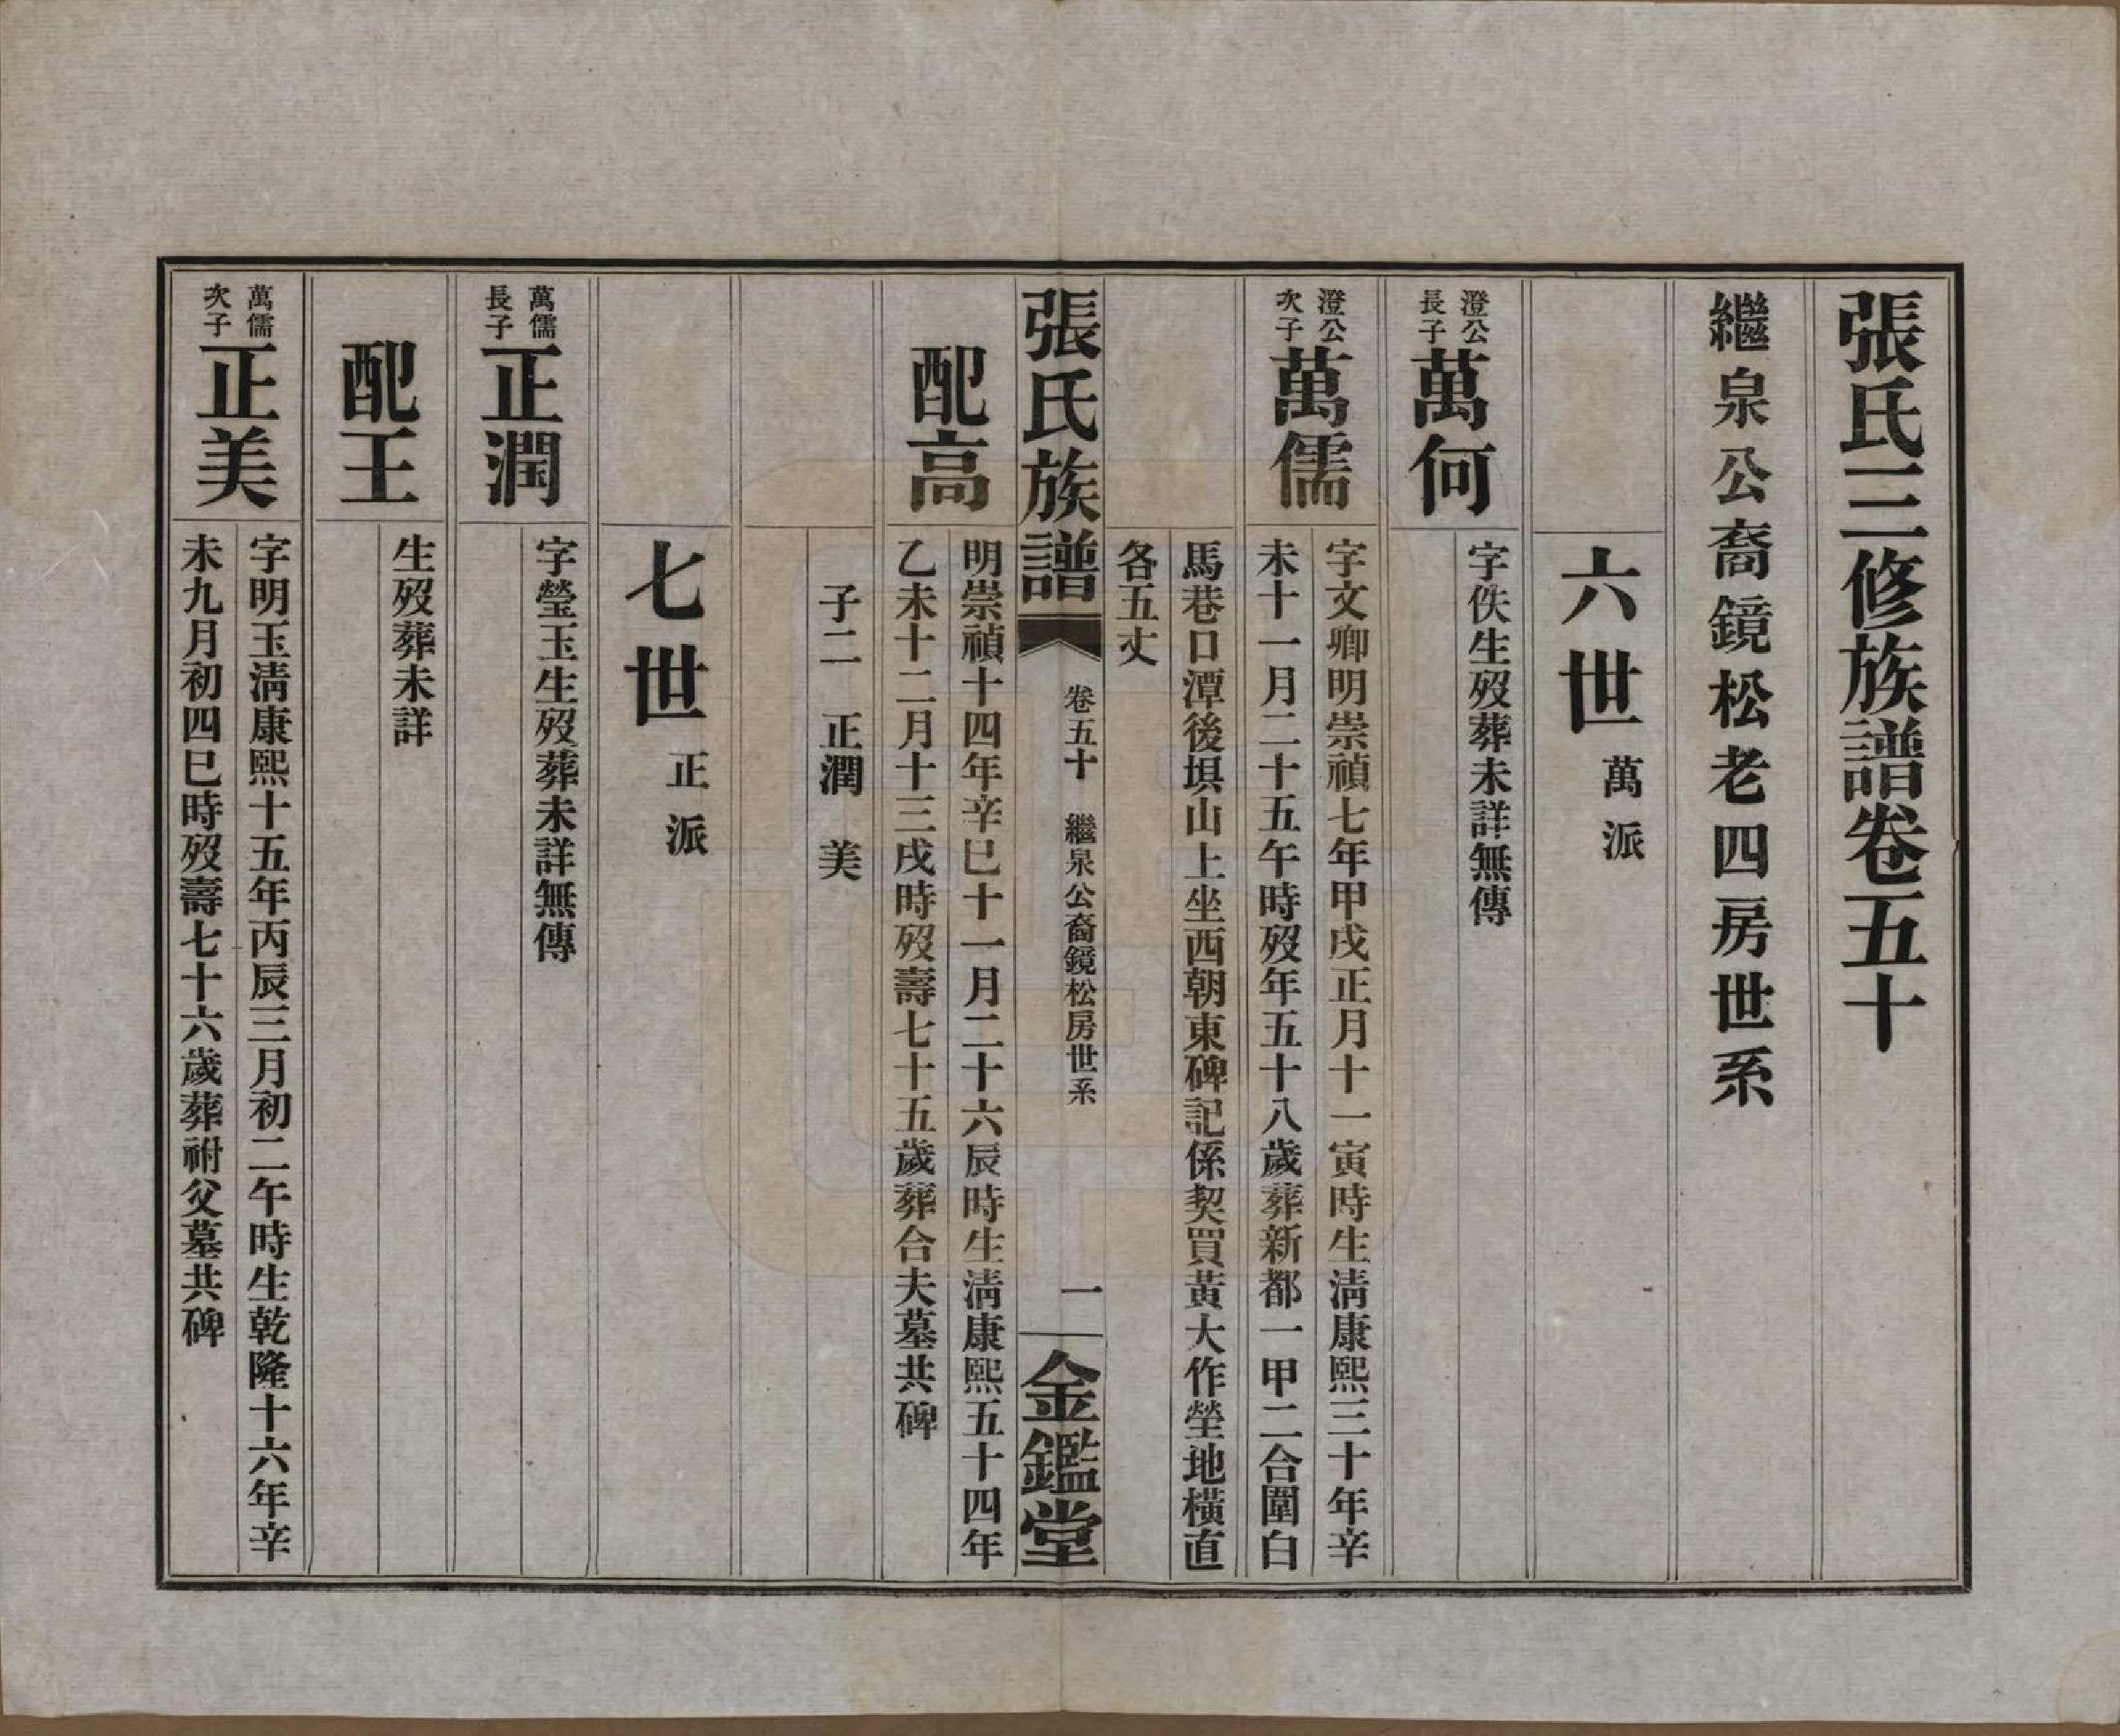 張氏三修族譜卷五十
繼泉公裔鏡松老四房世系
六世萬派
澄公
長子
萬何
字佚生歿葬未詳無傳
澄公
次子
萬儒
字文卿明崇禎七年甲戌正月十一寅時生淸康熙三十年辛
未十一月二十五午時歿年五十八歲葬新都一甲二合圍白
馬巷口潭後垻山上坐西朝東碑記係契買黃大作塋地橫直
各五丈
張氏族譜
卷五十 繼泉公裔鏡松房世系
一
金鑑堂
配高
明崇禎十四年辛巳十一月二十六辰時生淸康熙五十四年
乙未十二月十三戌時歿壽七十五歲葬合夫墓共碑
子二 正潤 美
七世正派
萬儒
長子
正潤
字瑩玉生歿葬未詳無傳
配王
生歿葬未詳
萬儒
次子
正美
字明玉淸康熙十五年丙辰三月初二午時生乾隆十六年辛
未九月初四巳時歿壽七十六歲葬祔父墓共碑